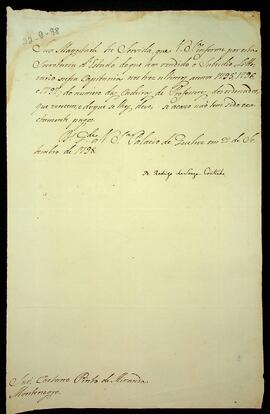 22-9-98
Sua Magestade he Servida, que V. S.ª informe por esta
Secretaria d'Estado do que tem rendido o Subsidio Litte-
rario nessa Capitania nos tres ultimos annos 1795, 1796,
e 1797, do numero das Cadeiras de Professores, dos ordenados,
que vencem, e do que se lhes deve, se acaso não tem sido exa-
ctamente pagos.
D.s G.de a V. S.ª Palacio de Queluz em 22 de Se-
tembro de 1798.
D. Rodrigo de Souza Coutinho
Snr. Caetano Pinto de Miranda
Montenegro.